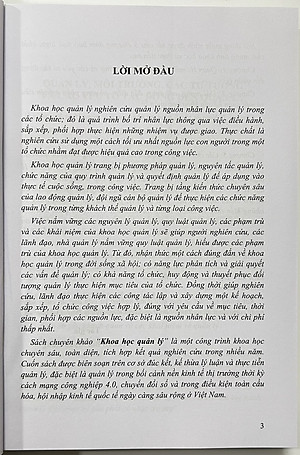 LỜI MỞ ĐẦU
Khoa học quản lý nghiên cứu quản lý nguồn nhân lực quản lý trong
các tổ chức; đó là quá trình bố trí nhân lực thông qua việc điều hành,
sắp xếp, phối hợp thực hiện những nhiệm vụ được giao. Thực chất là
nghiên cứu sử dụng một cách tối ưu nhất nguồn lực con người trong một
tổ chức nhằm đạt được hiệu quả cao trong công việc.
Khoa học quản lý trang bị phương pháp quản lý, nguyên tắc quản lý,
chức năng của quy trình quản lý và quyết định quản lý để áp dụng vào
thực tế cuộc sống, trong công việc. Trang bị tăng kiến thức chuyên sâu
của lao động quản lý, đội ngũ cán bộ quản lý để thực hiện các chức năng
quản lý trong từng khách thể quản lý và từng loại công việc.
Việc nắm vững các nguyên lý quản lý, quy luật quản lý, các phạm trù
và các khái niệm của khoa học quản lý sẽ giúp người nghiên cứu, các
lãnh đạo, nhà quản lý nắm vững quy luật quản lý, hiểu được các phạm
trù của khoa học quản lý. Từ đó, nhận thức một cách đúng đắn về khoa
học quản lý trong đời sống xã hội; có năng lực phân tích và giải quyết
các vấn đề quản lý; có khả năng tổ chức, huy động và thuyết phục đối
tượng quản lý thực hiện mục tiêu của tổ chức. Đồng thời giúp nghiên
cứu, lãnh đạo thực hiện các công tác lập và xây dựng một kế hoạch,
sắp xếp, tổ chức công việc hợp lý, đúng với yêu cầu về mục tiêu, thời
gian, phối hợp các nguồn lực, đặc biệt là nguồn nhân lực và với chi phí
thấp nhất.
Sách chuyên khảo "Khoa học quản lý" là một công trình khoa học
chuyên sâu, toàn diện, tích hợp kết quả nghiên cứu trong nhiều năm.
Cuốn sách được biên soạn trên cơ sở đúc kết, kế thừa lý luận và thực tiễn
quản lý, đặc biệt là quản lý trong bối cảnh nền kinh tế thị trường thời kỳ
cách mạng công nghiệp 4.0, chuyển đổi số và trong điều kiện toàn cầu
hóa, hội nhập kinh tế quốc tế ngày càng sâu rộng ở Việt Nam.
3